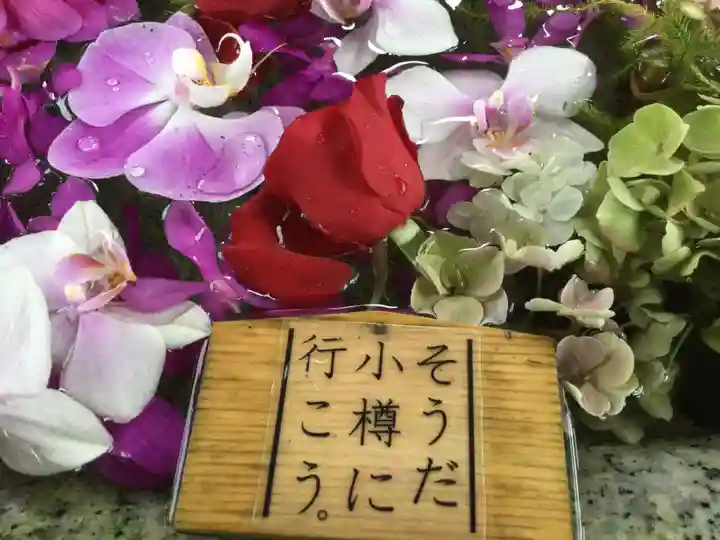 そうだ
小樽に
行こう。